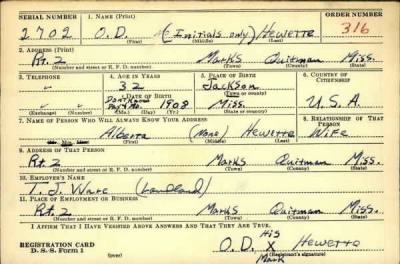 SERIAL NUMBER 1. NAME (Print) ORDER NUMBER
2702 O.D. (Initials only) Hewette 316
(First) (Middle) (Last)
2. ADDRESS (Print)
Rt. 2 Marks Quitman Miss.
(Number and street or R. F. D. number) (Town) (County) (State)
3. TELEPHONE 4. AGE IN YEARS 5. PLACE OF BIRTH 6. COUNTRY OF CITIZENSHIP
32 Jackson
DATE OF BIRTH (Town or county)
Don't Know 1908 Miss. U.S.A.
(Exchange) (Number) (Mo.) (Day) (Yr.) (State or country)
7. NAME OF PERSON WHO WILL ALWAYS KNOW YOUR ADDRESS 8. RELATIONSHIP OF THAT PERSON
Alberta (None) Hewette Wife
(First) (Middle) (Last)
9. ADDRESS OF THAT PERSON
Rt. 2 Marks Quitman Miss.
(Number and street or R. F. D. number) (Town) (County) (State)
10. EMPLOYER'S NAME
T. J. Ware (Landland)
11. PLACE OF EMPLOYMENT OR BUSINESS
Rt. 2 Marks Quitman Miss.
(Number and street or R. F. D. number) (Town) (County) (State)
I AFFIRM THAT I HAVE VERIFIED ABOVE ANSWERS AND THAT THEY ARE TRUE.
His
REGISTRATION CARD O.D. X Hewette
D. S. S. Form 1 Mark
(Registrant's signature)